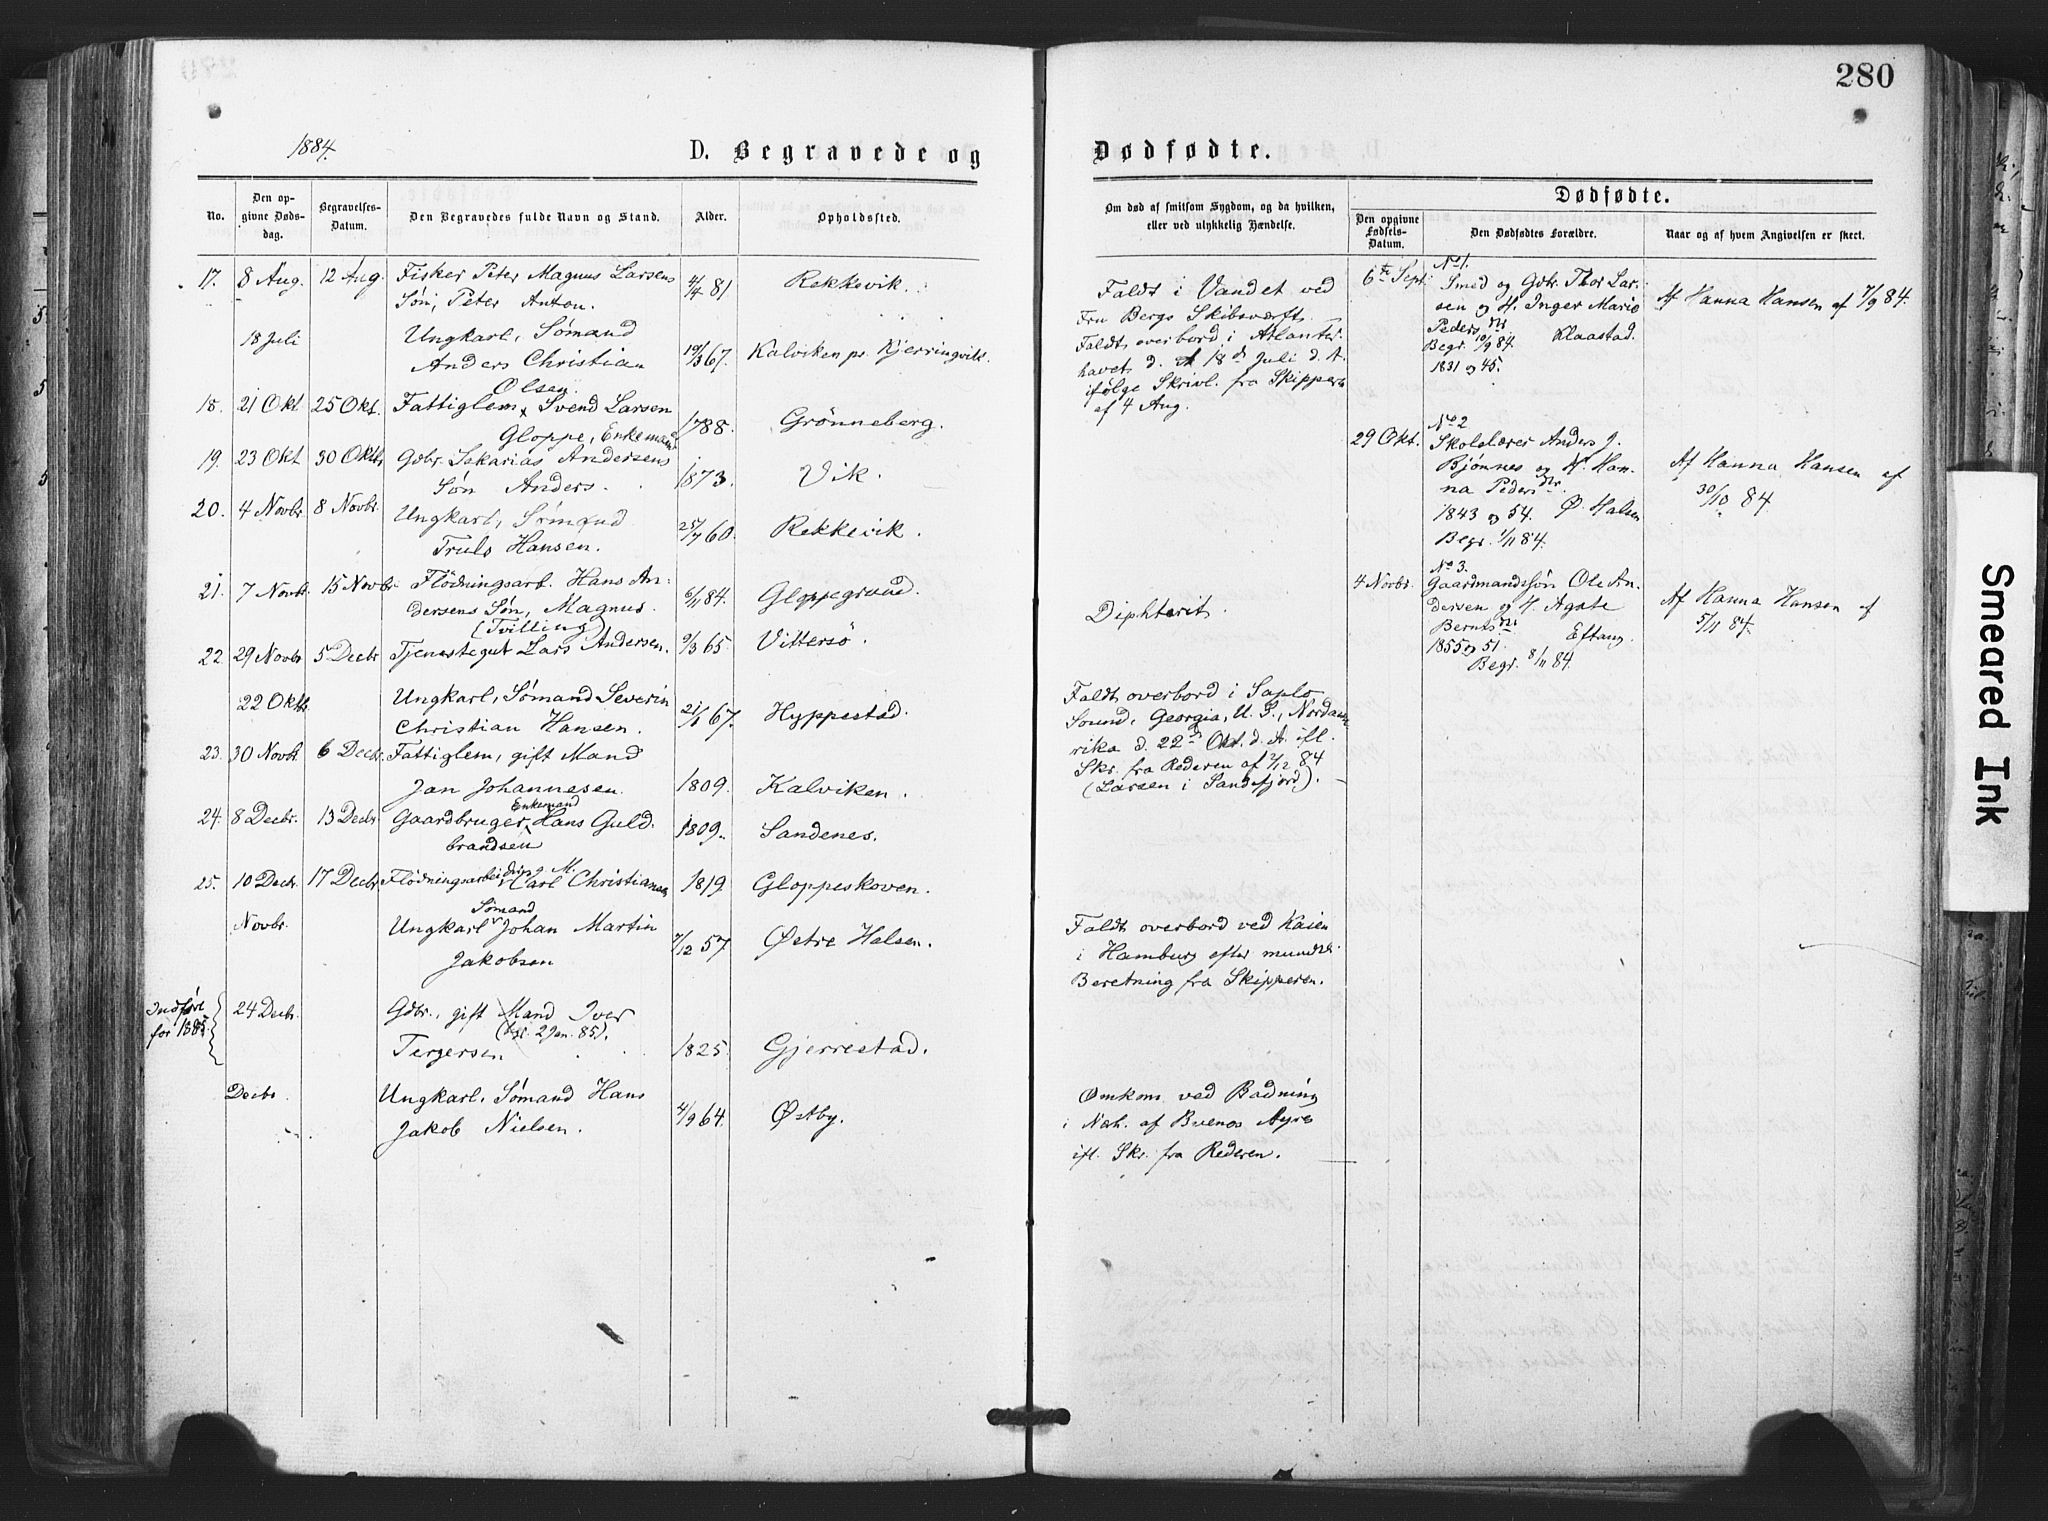 280
1884.
D. Begravede og Dødfødte.
No.
Den opgivne Dødsdag.
Begravelses-Datum.
Den Begravedes fulde Navn og Stand.
Alder.
Opholdssted.
Om død af smitsom Sygdom, og da hvilken,
eller ved ulykkelig Hændelse.
Dødfødte.
Den opgivne
Fødsels-
Datum.
Den Dødfødtes Forældre.
Naar og af hvem Angivelsen er skeet.
17. 8 Aug. 12 Aug. Fisker Peter Magnus Larsens 4/4 81 Rekkevik.
Søn, Peter Anton.
Faldt i Vandet ved
Fru Bergs Skibsværft.
18 Juli Ungkarl, Sømand
Anders Christian 19/3 67. Kalviken pr. Kjerringvik.
Olsen.
Faldt overbord i Atlanter-
havet d. 18d Juli d. A.
ifølge Skrivl. fra Skipperen
af 4 Aug.
18. 21 Okt 25 Okt. Fattiglem, Svend Larsen
Gloppe, Enkemand 1788. Grønneberg.
19. 23 Okt 30 Oktb Gdbr. Sakarias Andersens
Søn Anders. 1873. Vik.
20. 4 Novbr 8 Novbr. Ungkarl, Sømand
Truls Hansen. 25/7 60. Rekkevik.
21. 7 Novbr. 15 Novbr Flødningsarb. Hans An-
dersens Søn, Magnus. 6/11 84. Gloppegrund.
(Tvilling)
Diphterit.
22. 29 Novbr. 5 Decbr. Tjenestegut Lars Andersen. 9/3 65. Vittersø.
22 Oktb. Ungkarl, Sømand Severin
Christian Hansen. 21/1 67. Hyppestad.
Faldt overbord i Saplo
Sound, Georgia, U. S., Nordam
rika d. 22d Okt. d. A. ifl.
Skr. fra Rederen af 7/12 84
(Larsen i Sandefjord).
23. 30 Novbr 6 Decbr. Fattiglem, gift Mand
Jan Johannesen. 1809. Kalviken.
24. 8 Decbr. 13 Decbr. Gaardbruger, Enkemand Hans Guld-
brandsen 1809. Sandenes.
25. 10 Decbr. 17 Decbr. Flødningsarbeider, g. M. Carl Christiansen 1819 Gloppeskoven.
Novbr. Ungkarl Sømand Johan Martin
Jakobsen 7/12 57. Østre Halsen.
Faldt overbord ved Kaien
i Hamburg efter mundtl.
Beretning fra Skipperen.
Indført
for 1885.
24 Decbr. Gdbr., gift Mand Iver
(bgr. 2 Jan. 85).
Tergersen 1825. Gjerrestad.
Decbr. Ungkarl, Sømand Hans
Jakob Nielsen. 4/9 64. Østby.
Omkom ved Badning
i Nærh. af Buenos Ayres
ifl. Skr. fra Rederen.
No 1.
6te Sept. Smed og Gdbr. Thor Lar-
sen og H. Inger Marie
Pedersdtr
Begr. 10/9 84. Klaastad.
1831 og 45.
Af Hanna Hansen af 7/9 84.
No 2
29 Okt. Skolelærer Anders J.
Bjønnes og H. Han-
na Pedersdtr.
1843 og 54. Ø. Halsen
Begr. 1/11 84.
Af Hanna Hansen af
30/10 84.
No 3.
4 Novbr. Gaardmandssøn Ole An-
dersen og H. Agate
Berntsdtr Eftang.
1855 og 51.
Begr. 8/11 84.
Af Hanna Hansen af
5/11 84.
Smeared Ink